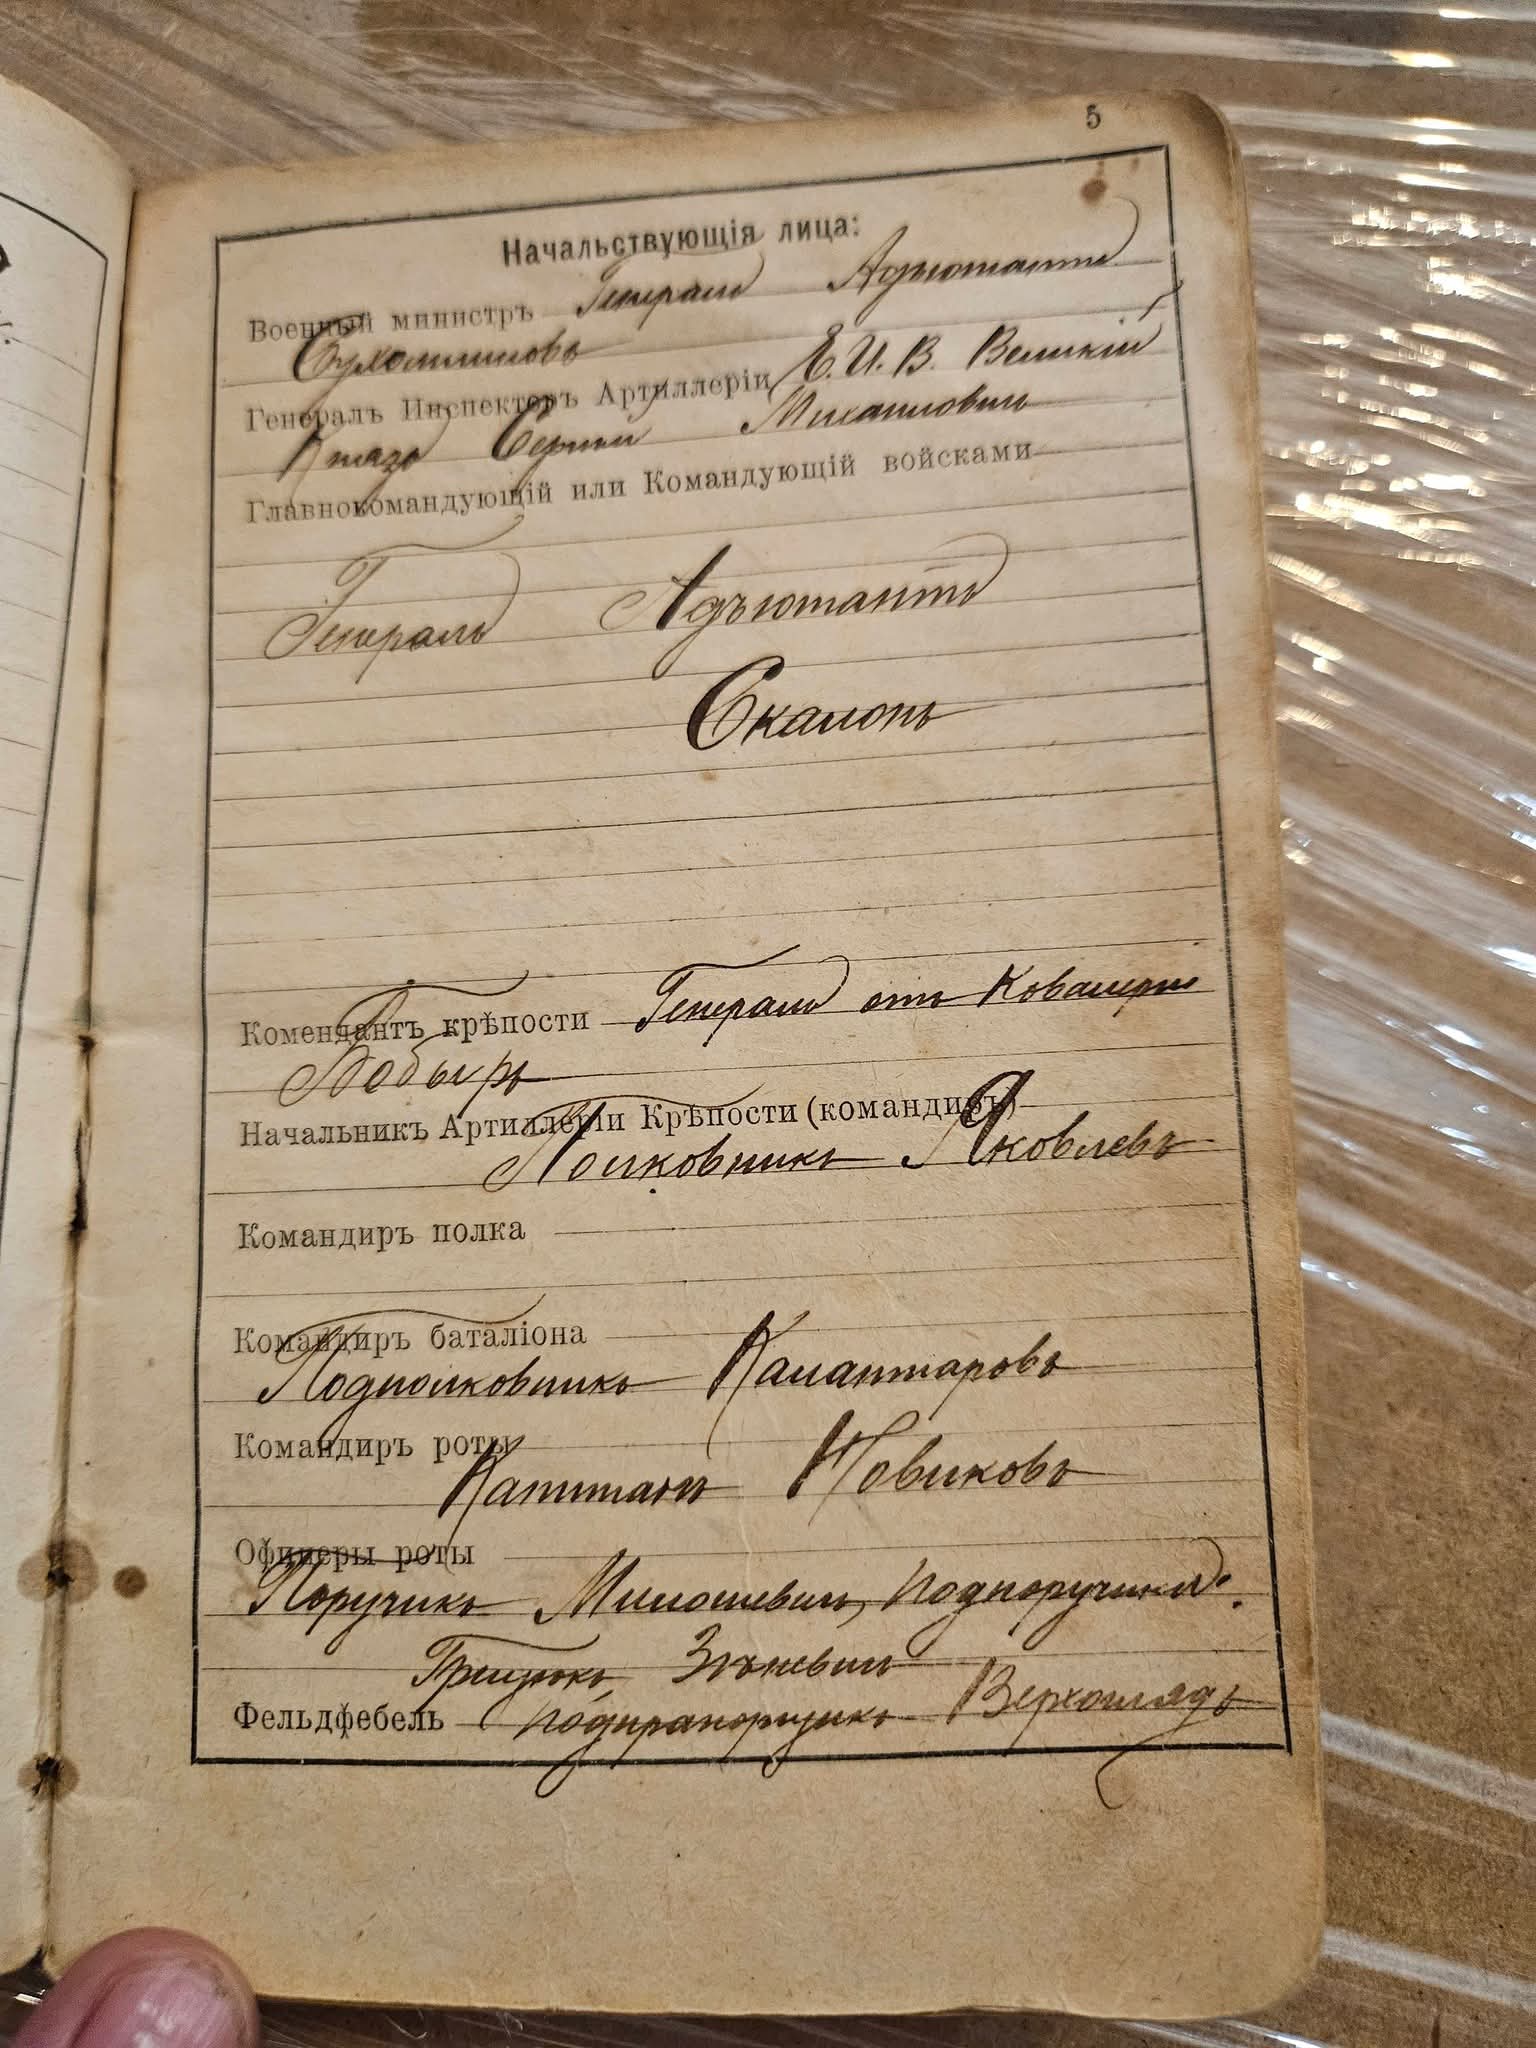 5
Начальствующія лица:
Военный министръ Генералъ Адъютантъ
Сухомлиновъ
Генералъ Инспекторъ Артиллеріи Е. И. В. Великій
Князь Сергій Михаиловичъ
Главнокомандующій или Командующій войсками
Генералъ Адъютантъ
Скалонъ
Комендантъ крѣпости Генералъ отъ Ковалеріи
Бобырь
Начальникъ Артиллеріи Крѣпости (командиръ)
Полковникъ Яковлевъ
Командиръ полка
Командиръ баталіона
Подполковникъ Калантаровъ
Командиръ роты
Капитанъ Новиковъ
Офицеры роты
Поручикъ Милошевичъ, Подпоручики:
Грицюкъ,
Фельдфебель Подпрапорщикъ Верхоглядъ